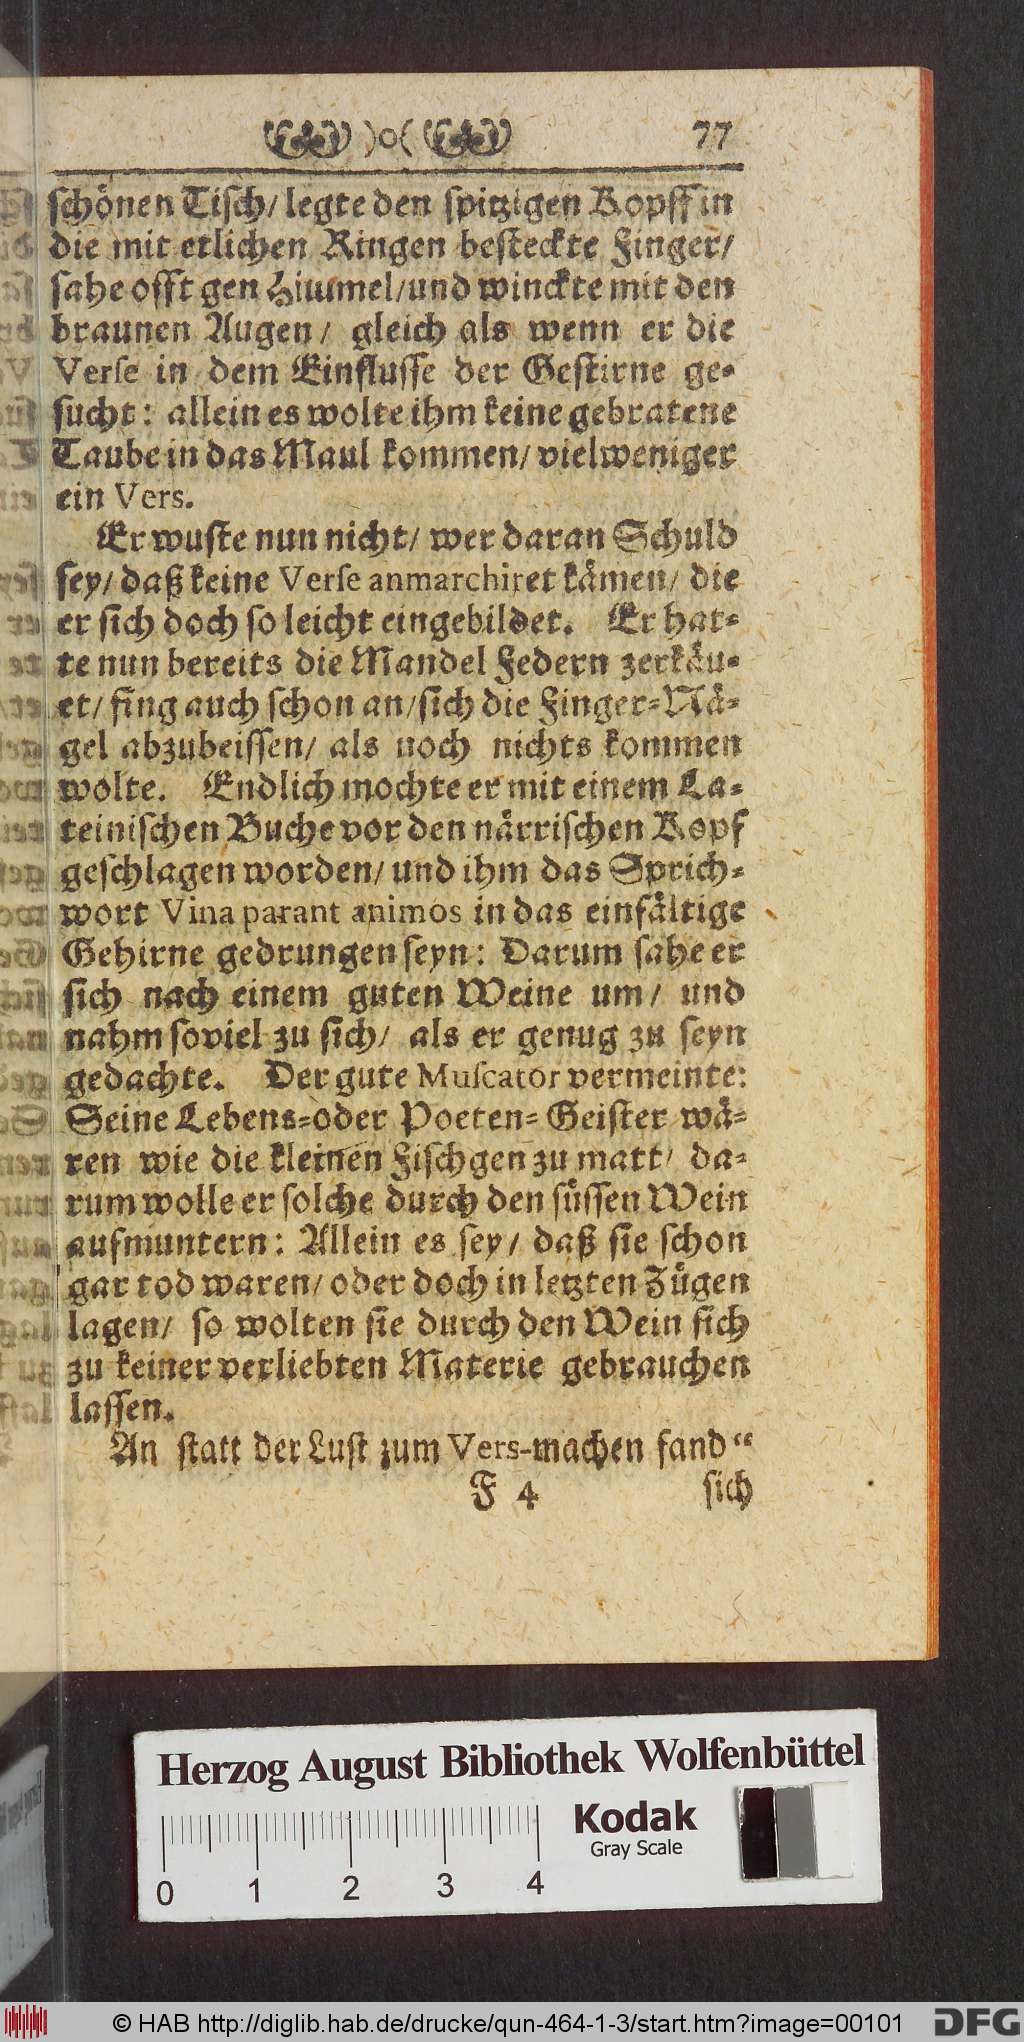 )o( 77
schönen Tisch/ legte den spitzigen Kopff in
die mit etlichen Ringen besteckte Finger/
sahe offt gen Himmel/und winckte mit den
braunen Augen/ gleich als wenn er die
Verse in dem Einflusse der Gestirne ge-
sucht: allein es wolte ihm keine gebratene
Taube in das Maul kommen/ vielweniger
ein Vers.
Er wuste nun nicht/ wer daran Schuld
sey/ daß keine Verse anmarchiret kämen/ die
er sich doch so leicht eingebildet. Er hat-
te nun bereits die Mandel Federn zerkäu-
et/ fing auch schon an/sich die Finger-Nä-
gel abzubeissen/ als noch nichts kommen
wolte. Endlich mochte er mit einem La-
teinischen Buche vor den närrischen Kopf
geschlagen worden/ und ihm das Sprich-
wort Vina parant animos in das einfältige
Gehirne gedrungen seyn: Darum sahe er
sich nach einem guten Weine um/ und
nahm soviel zu sich/ als er genug zu seyn
gedachte. Der gute Muscator vermeinte:
Seine Lebens-oder Poeten-Geister wä-
ren wie die kleinen Fischgen zu matt/ da-
rum wolle er solche durch den süssen Wein
aufmuntern: Allein es sey/ daß sie schon
gar tod waren/ oder doch in letzten Zügen
lagen/ so wolten sie durch den Wein sich
zu keiner verliebten Materie gebrauchen
lassen.
An statt der Lust zum Vers-machen fand “
F 4 sich
Herzog August Bibliothek Wolfenbüttel
Kodak
Gray Scale
0 1 2 3 4
© HAB http://diglib.hab.de/drucke/qun-464-1-3/start.htm?image=00101 DFG